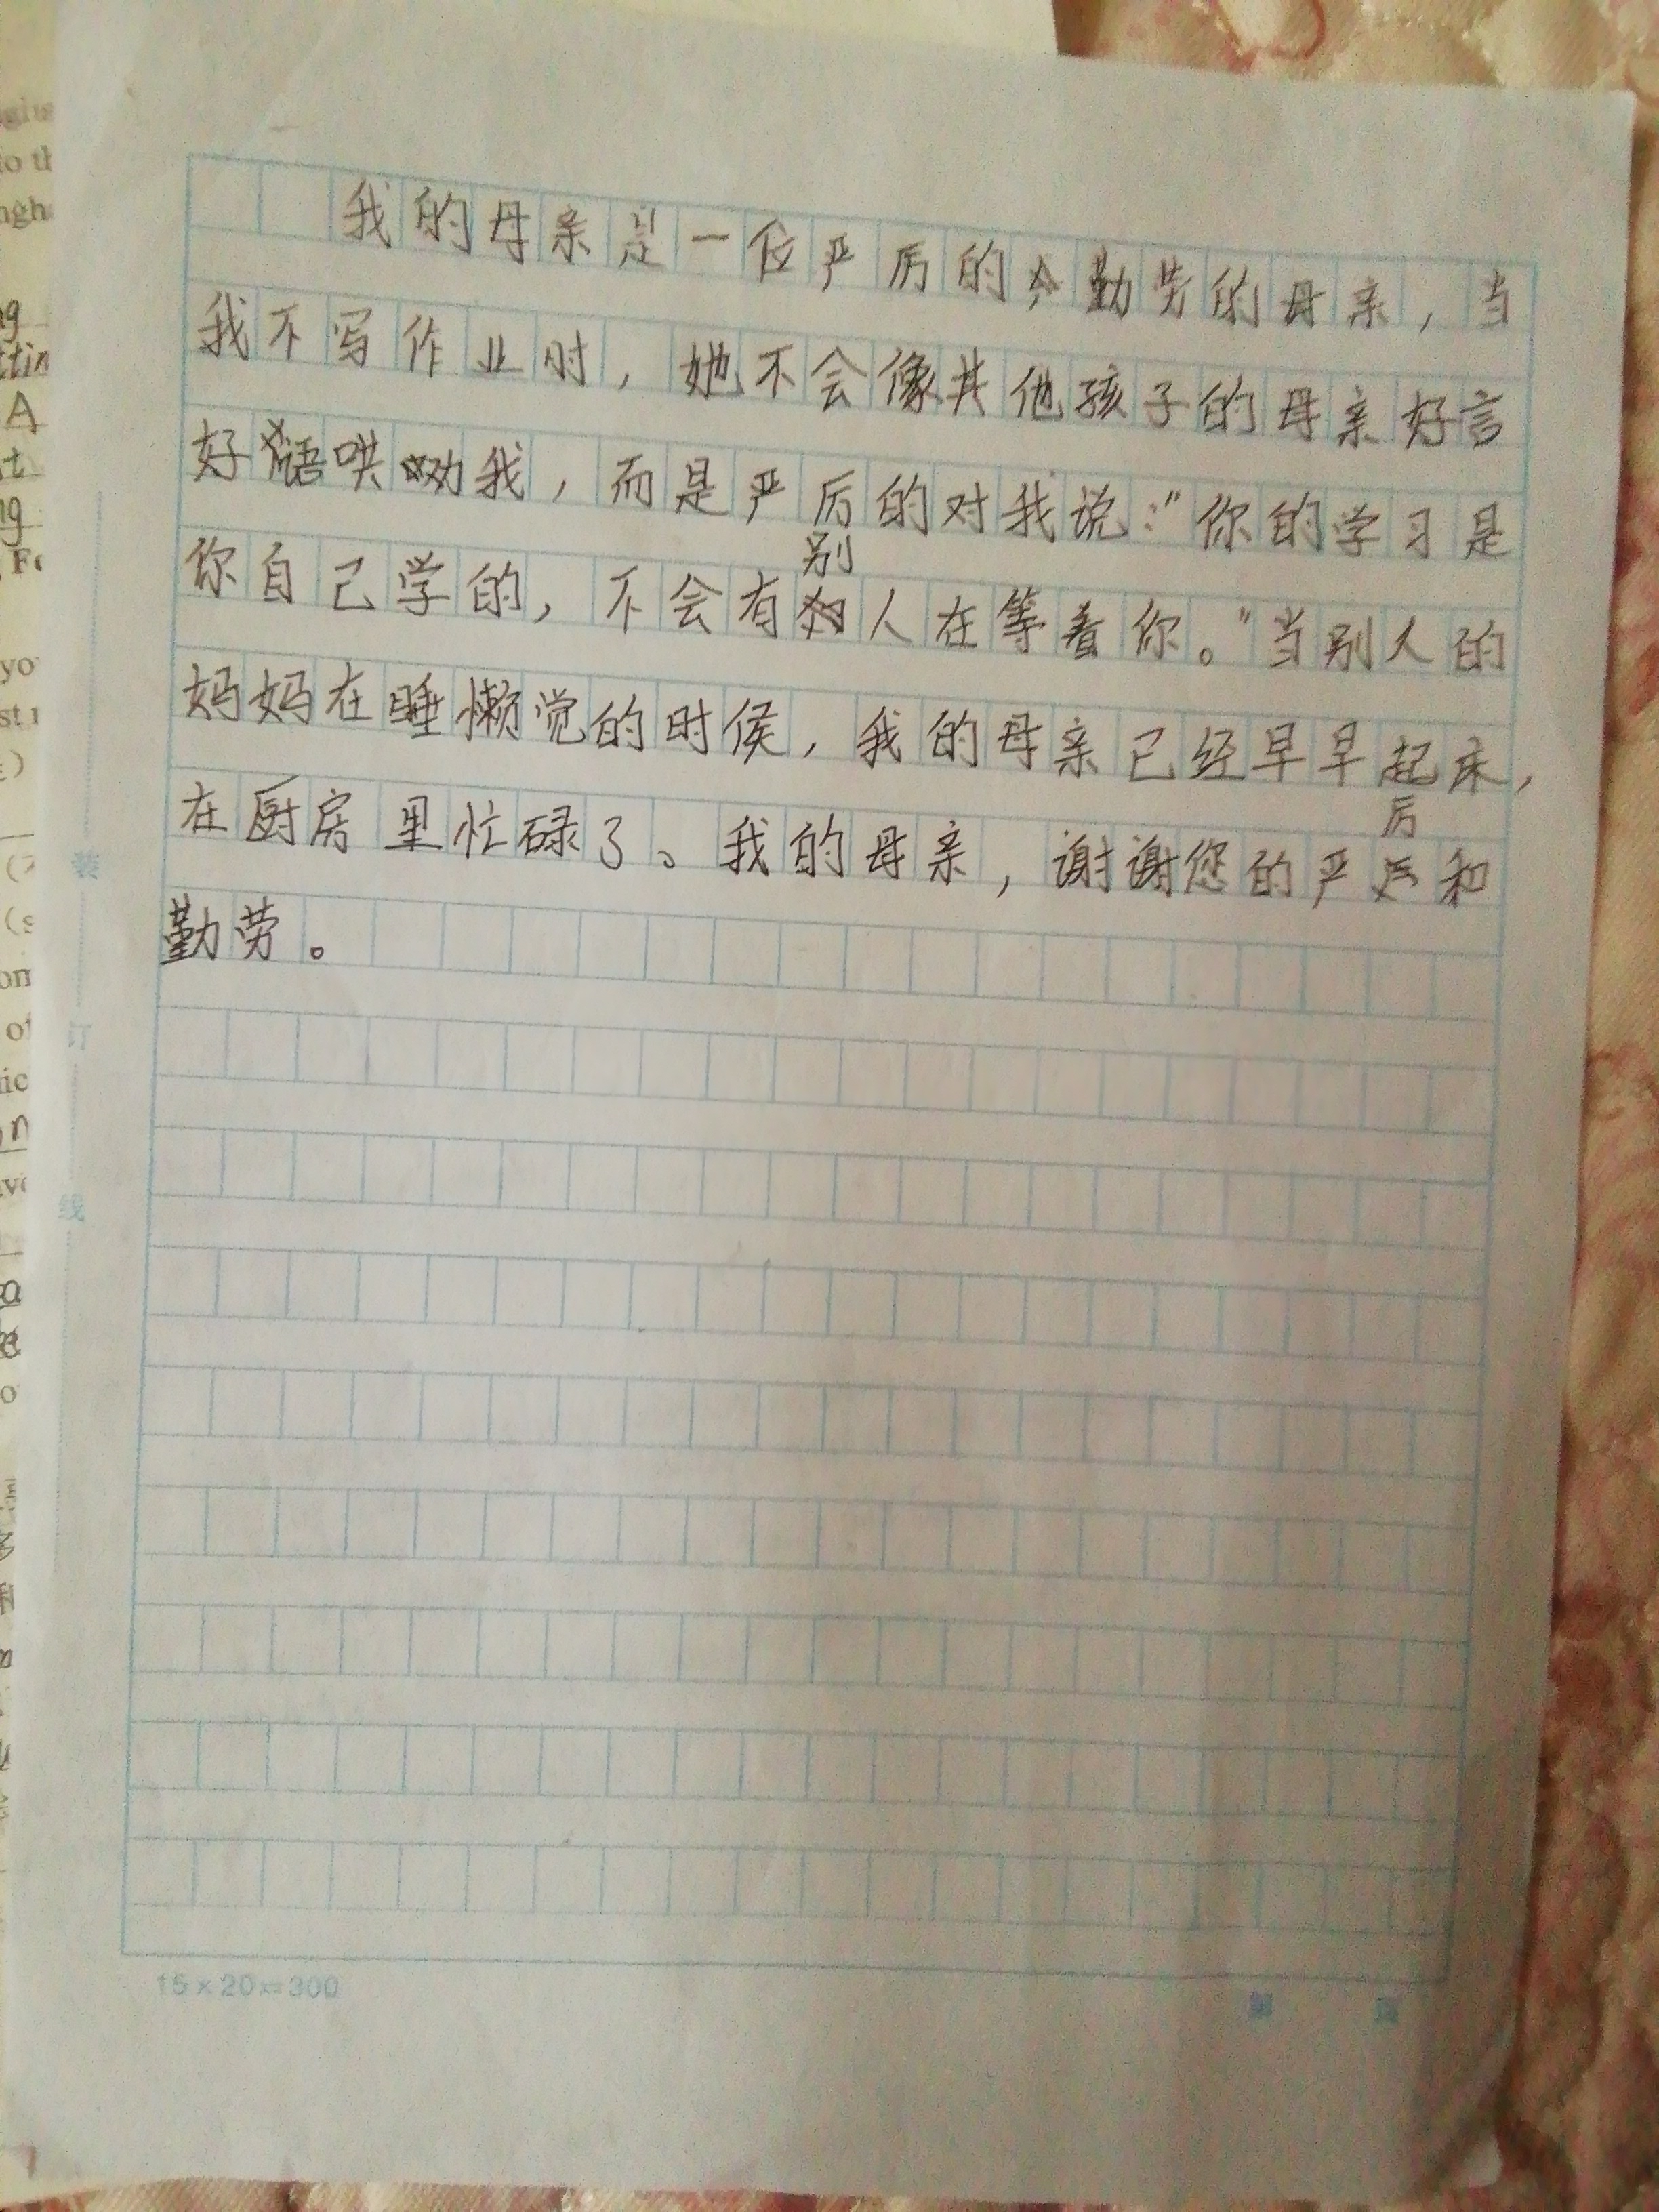 我的母亲是一位严厉的勤劳的母亲，当
我不写作业时，她不会像其他孩子的母亲好言
好语哄劝我，而是严厉的对我说："你的学习是
你自己学的，不会有别人在等着你。"当别人的
妈妈在睡懒觉的时侯，我的母亲已经早早起床，
在厨房里忙碌了。我的母亲，谢谢您的严厉和
勤劳。
装
订
线
15×20=300
第 页
yo
A
of